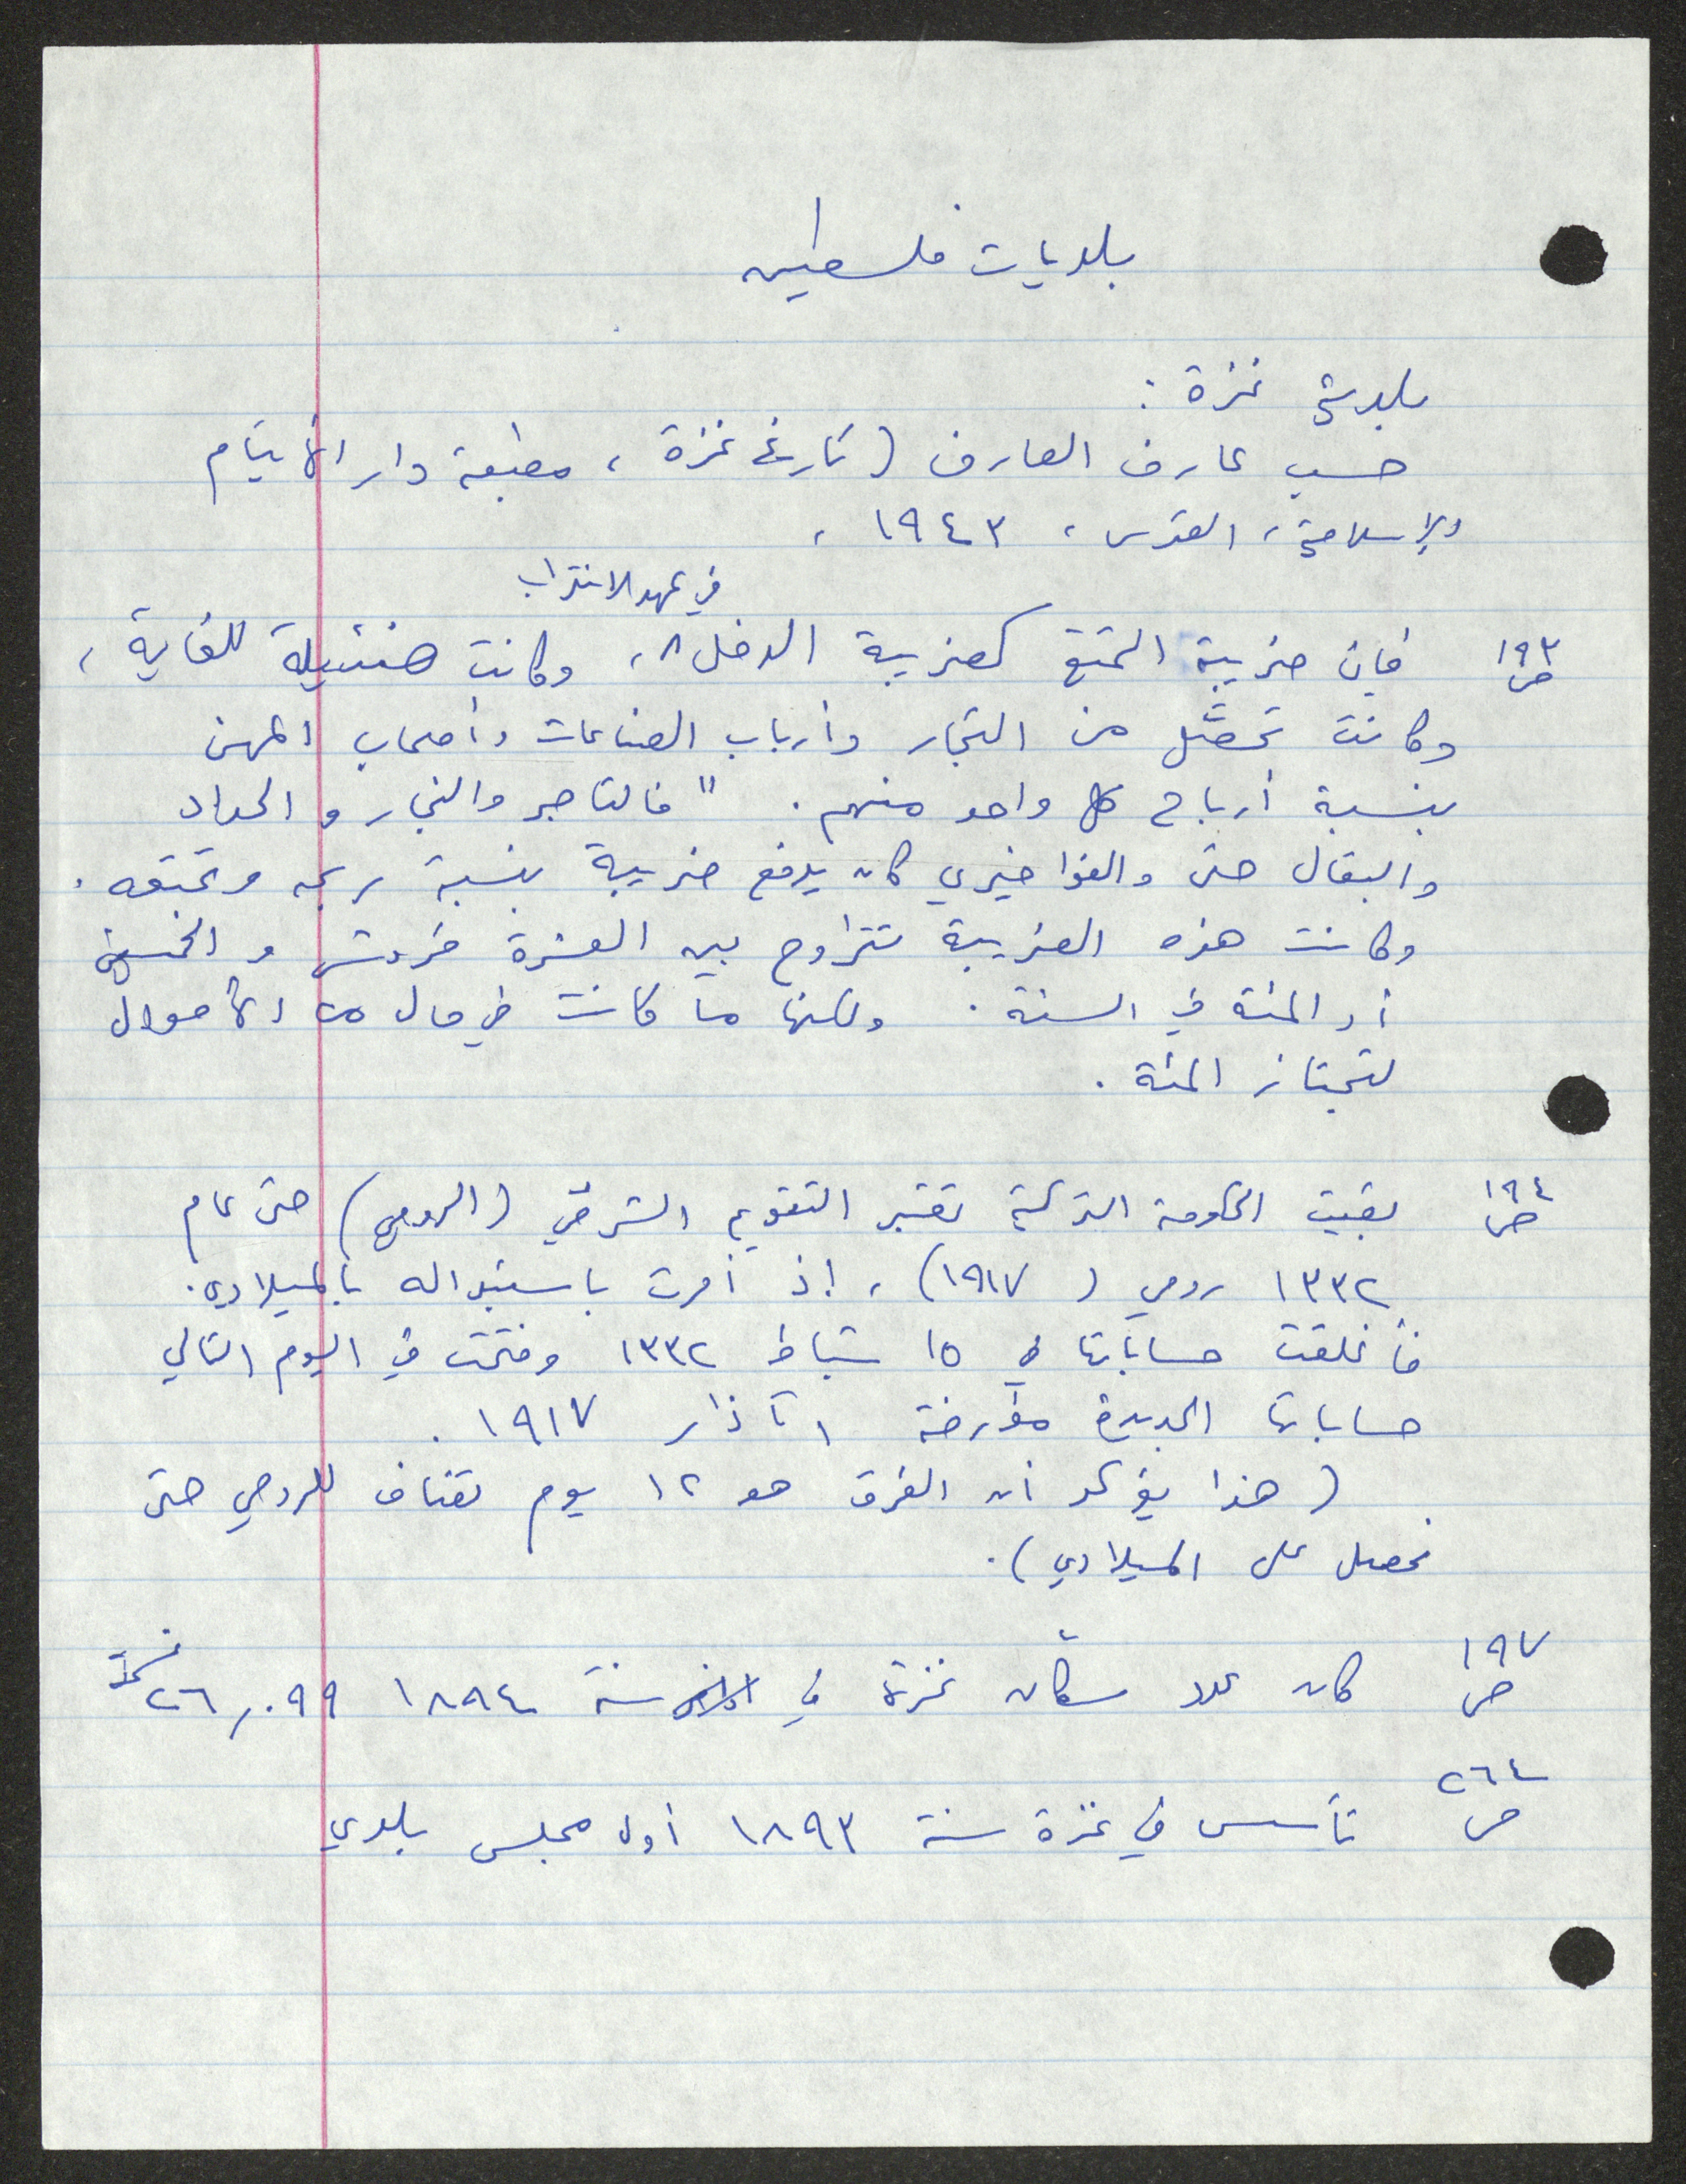 بلديات فلسطين
بلدية غزة :
حسب عارف العارف (تاريخ غزة ، مطبعة دار الأيتام
الإسلامية ، القدس ، ١٩٤٣ ،
في عهد الانتداب
ص ١٩٣ فإن ضريبة التمتع كضريبة الدخل ٨، وكانت ضئيلة للغاية ،
وكانت تحصَّل من التجار وأرباب الصناعات وأصحاب المهن
بنسبة أرباح كل واحد منهم . " فالتاجر والنجار و الحداد
والبقال حتى والفواخيري كان يدفع ضريبة بنسبة ربحه وتمتعه .
وكانت هذه الضريبة تتراوح بين العشرة قروش و الخمسين
أو المئة في السنة . ولكنها ما كانت في حال من الأحوال
لتجتاز المئة .
ص ١٩٤ بقيت الحكومة التركية تعتبر التقويم الشرقي (الرومي) حتى عام
١٣٣٢ رومي ( ١٩١٧) ، إذ أمرت باستبداله بالميلادي .
فأغلقت حساباتها في ١٥ شباط ١٣٣٢ وفتحت في اليوم التالي
حساباتها الجديدة مؤرخة ١ آذار ١٩١٧ .
( هذا يؤكد أن الفرق هو ١٢ يوم تضاف للرومي حتى
نحصل على الميلادي ) .
ص ١٩٧ كان عدد سكّان غزة في سنة ١٨٩٤ ٢٦,٠٩٩ نسمة
ص ٢٦٤ تأسس في غزة سنة ١٨٩٣ أول مجلس بلدي